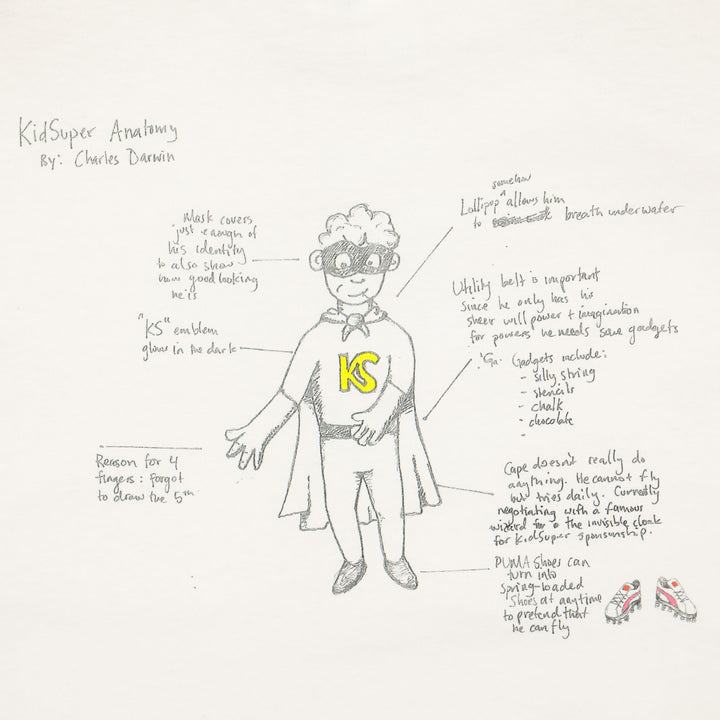 KidSuper Anatomy
By: Charles Darwin
Mask covers
just enough of
his identity
to also show
how good looking
he is
"KS" emblem
glows in the dark
Reason for 4
fingers: Forgot
to draw the 5th
KS
somehow
Lollipop ^ allows him
to breath underwater
Utility belt is important
since he only has his
sheer will power + imagination
for powers he needs some gadgets
Gadgets include:
- silly string
- stencils
- chalk
- chocolate
-
Cape doesn't really do
anything. He cannot fly
but tries daily. Currently
negotiating with a famous
wizard for the invisible cloak
for KidSuper sponsorship.
PUMA Shoes can
turn into
spring-loaded
Shoes at anytime
to pretend that
he can fly